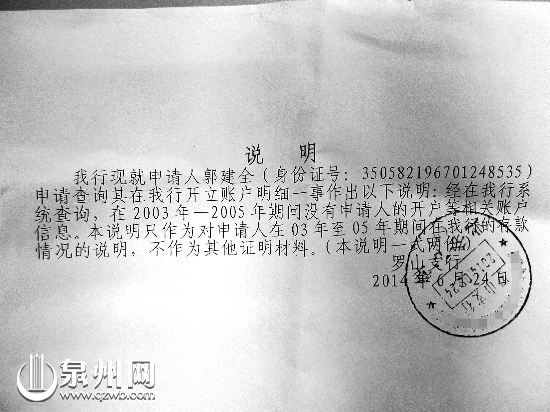 说 明
我行现就申请人郭建全（身份证号：350582196701248535）
申请查询其在我行开立账户明细一事作出以下说明：经在我行系
统查询，在2003年—2005年期间没有申请人的开户等相关账户
信息。本说明只作为对申请人在03年至05年期间在我行的存款
情况的说明，不作为其他证明材料。（本说明一式两份）
罗山支行
2014年6月24日
泉州网
www.qzwb.com